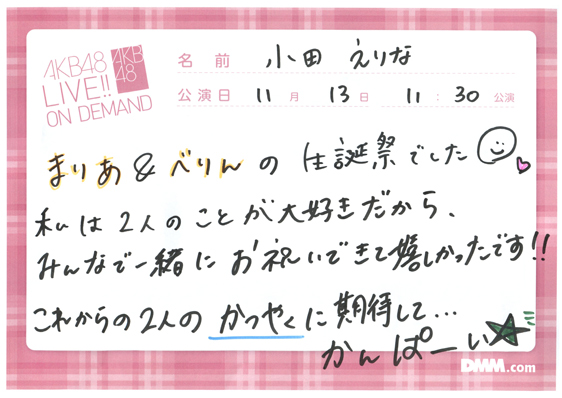 AKB48
LIVE!!
ON DEMAND
AKB
48
名前 小田えりな
公演日 11月 13日 11:30 公演
まりあ & べりん の 生誕祭でした
私は2人のことが大好きだから、
みんなで一緒にお祝いできて嬉しかったです!!
これからの2人のかつやくに期待して...
かんぱーい
DMM.com